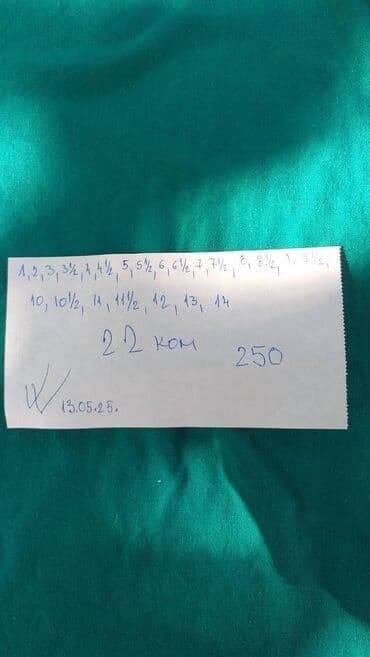 1, 2, 3, 3½, 4, 4½, 5, 5½, 6, 6½, 7, 7½, 8, 8½, 9, 9½,
10, 10½, 11, 11½, 12, 13, 14
22 ком
250
13.05.25.